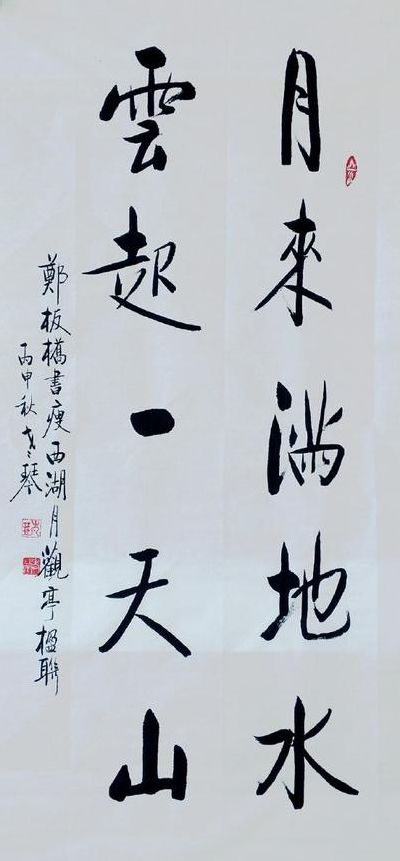 月來滿地水
雲起一天山
鄭板橋書瘦西湖月觀亭楹聯
丙申秋
琴